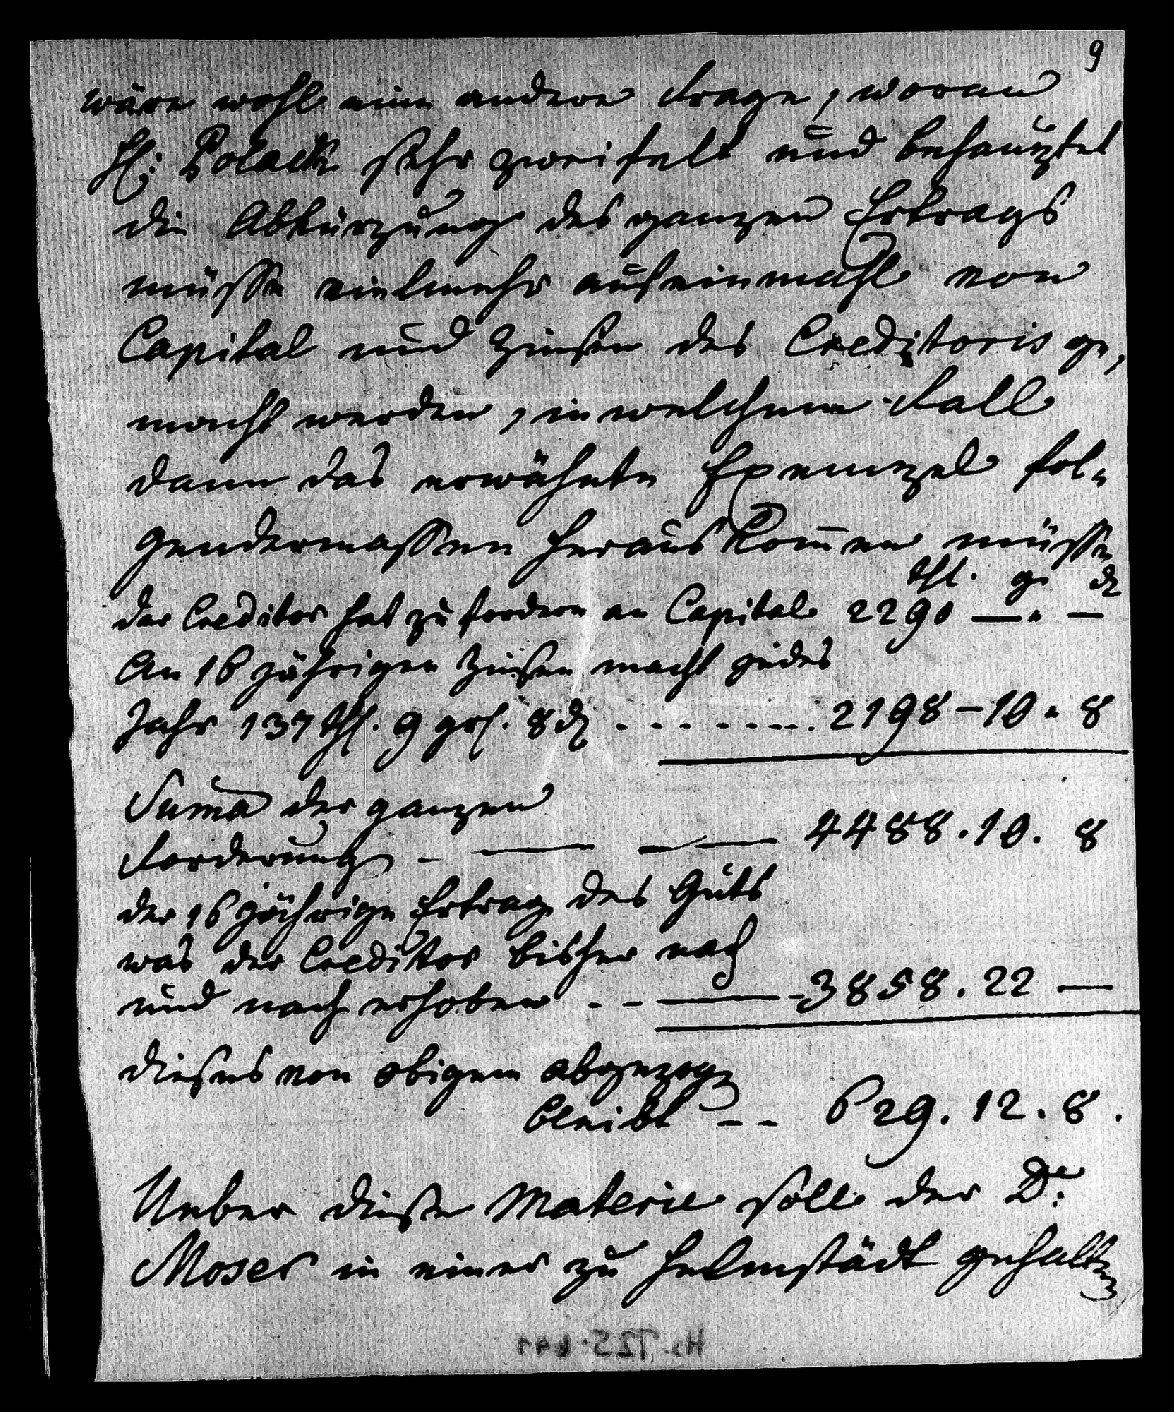 9
wäre wohl eine andere Frage, woran
H: Polack sehr zweifelt und behauptet
die Abkürzung des ganzen Ertrags
müsse vielmehr auf einmahl von
Capital und Zinsen des Creditoris ge,
macht werden, in welchem Fall
dann das erwähnte Exempel fol-
gendermassen heraus kom̅en müsse
thl. g. d
der Creditor hat zu fordern an Capital 2290 —. —
An 16 jährigen Zinsen macht jedes
Jahr 137 thl. 9 grl. 8 d ......... 2198 – 10. 8
Sum̅a der ganzen
Forderung - — — — 4488. 10. 8
der 16 jährige Ertrag des Guts
was der Creditor bisher nach
und nach erhoben - - — 3858. 22 —
dieses von obigem abgezogen
bleibt - - 629. 12. 8.
Ueber diese Materie soll der Dr:
Moser in einer zu Helmstädt gehalten
Hs. 725: